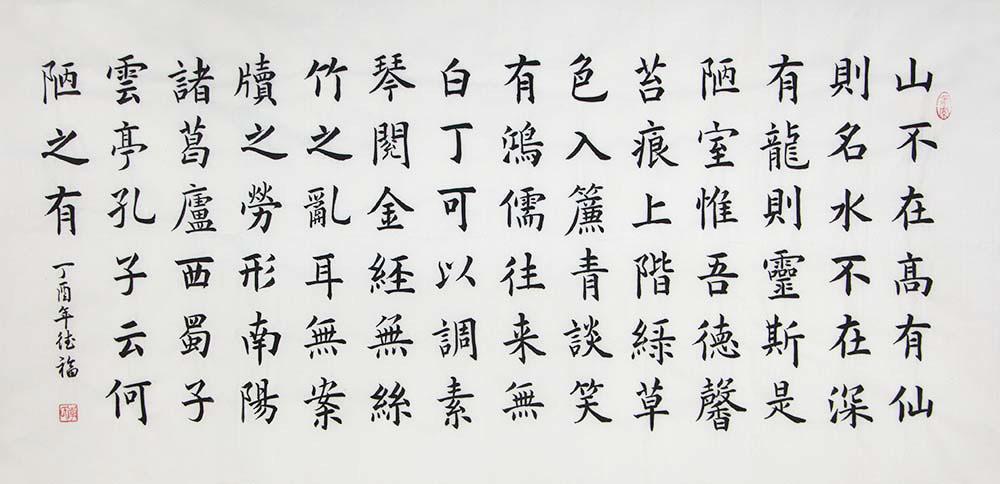 山不在高有仙
則名水不在深
有龍則靈斯是
陋室惟吾德馨
苔痕上階緑草
色入簾青談笑
有鴻儒往来無
白丁可以調素
琴閱金経無絲
竹之亂耳無案
牘之勞形南陽
諸葛廬西蜀子
雲亭孔子云何
陋之有
丁酉年德福